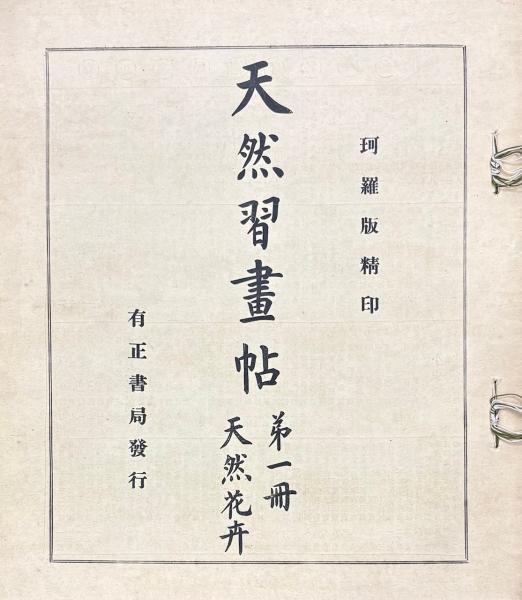 珂羅版精印
天然習畫帖
第一冊
天然花卉
有正書局發行